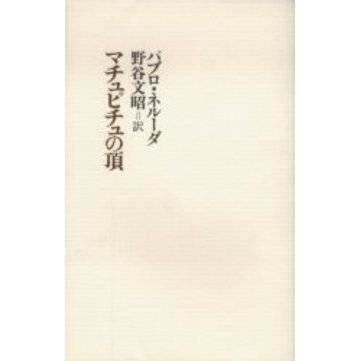 パブロ・ネルーダ
野谷文昭=訳
マチュピチュの頂